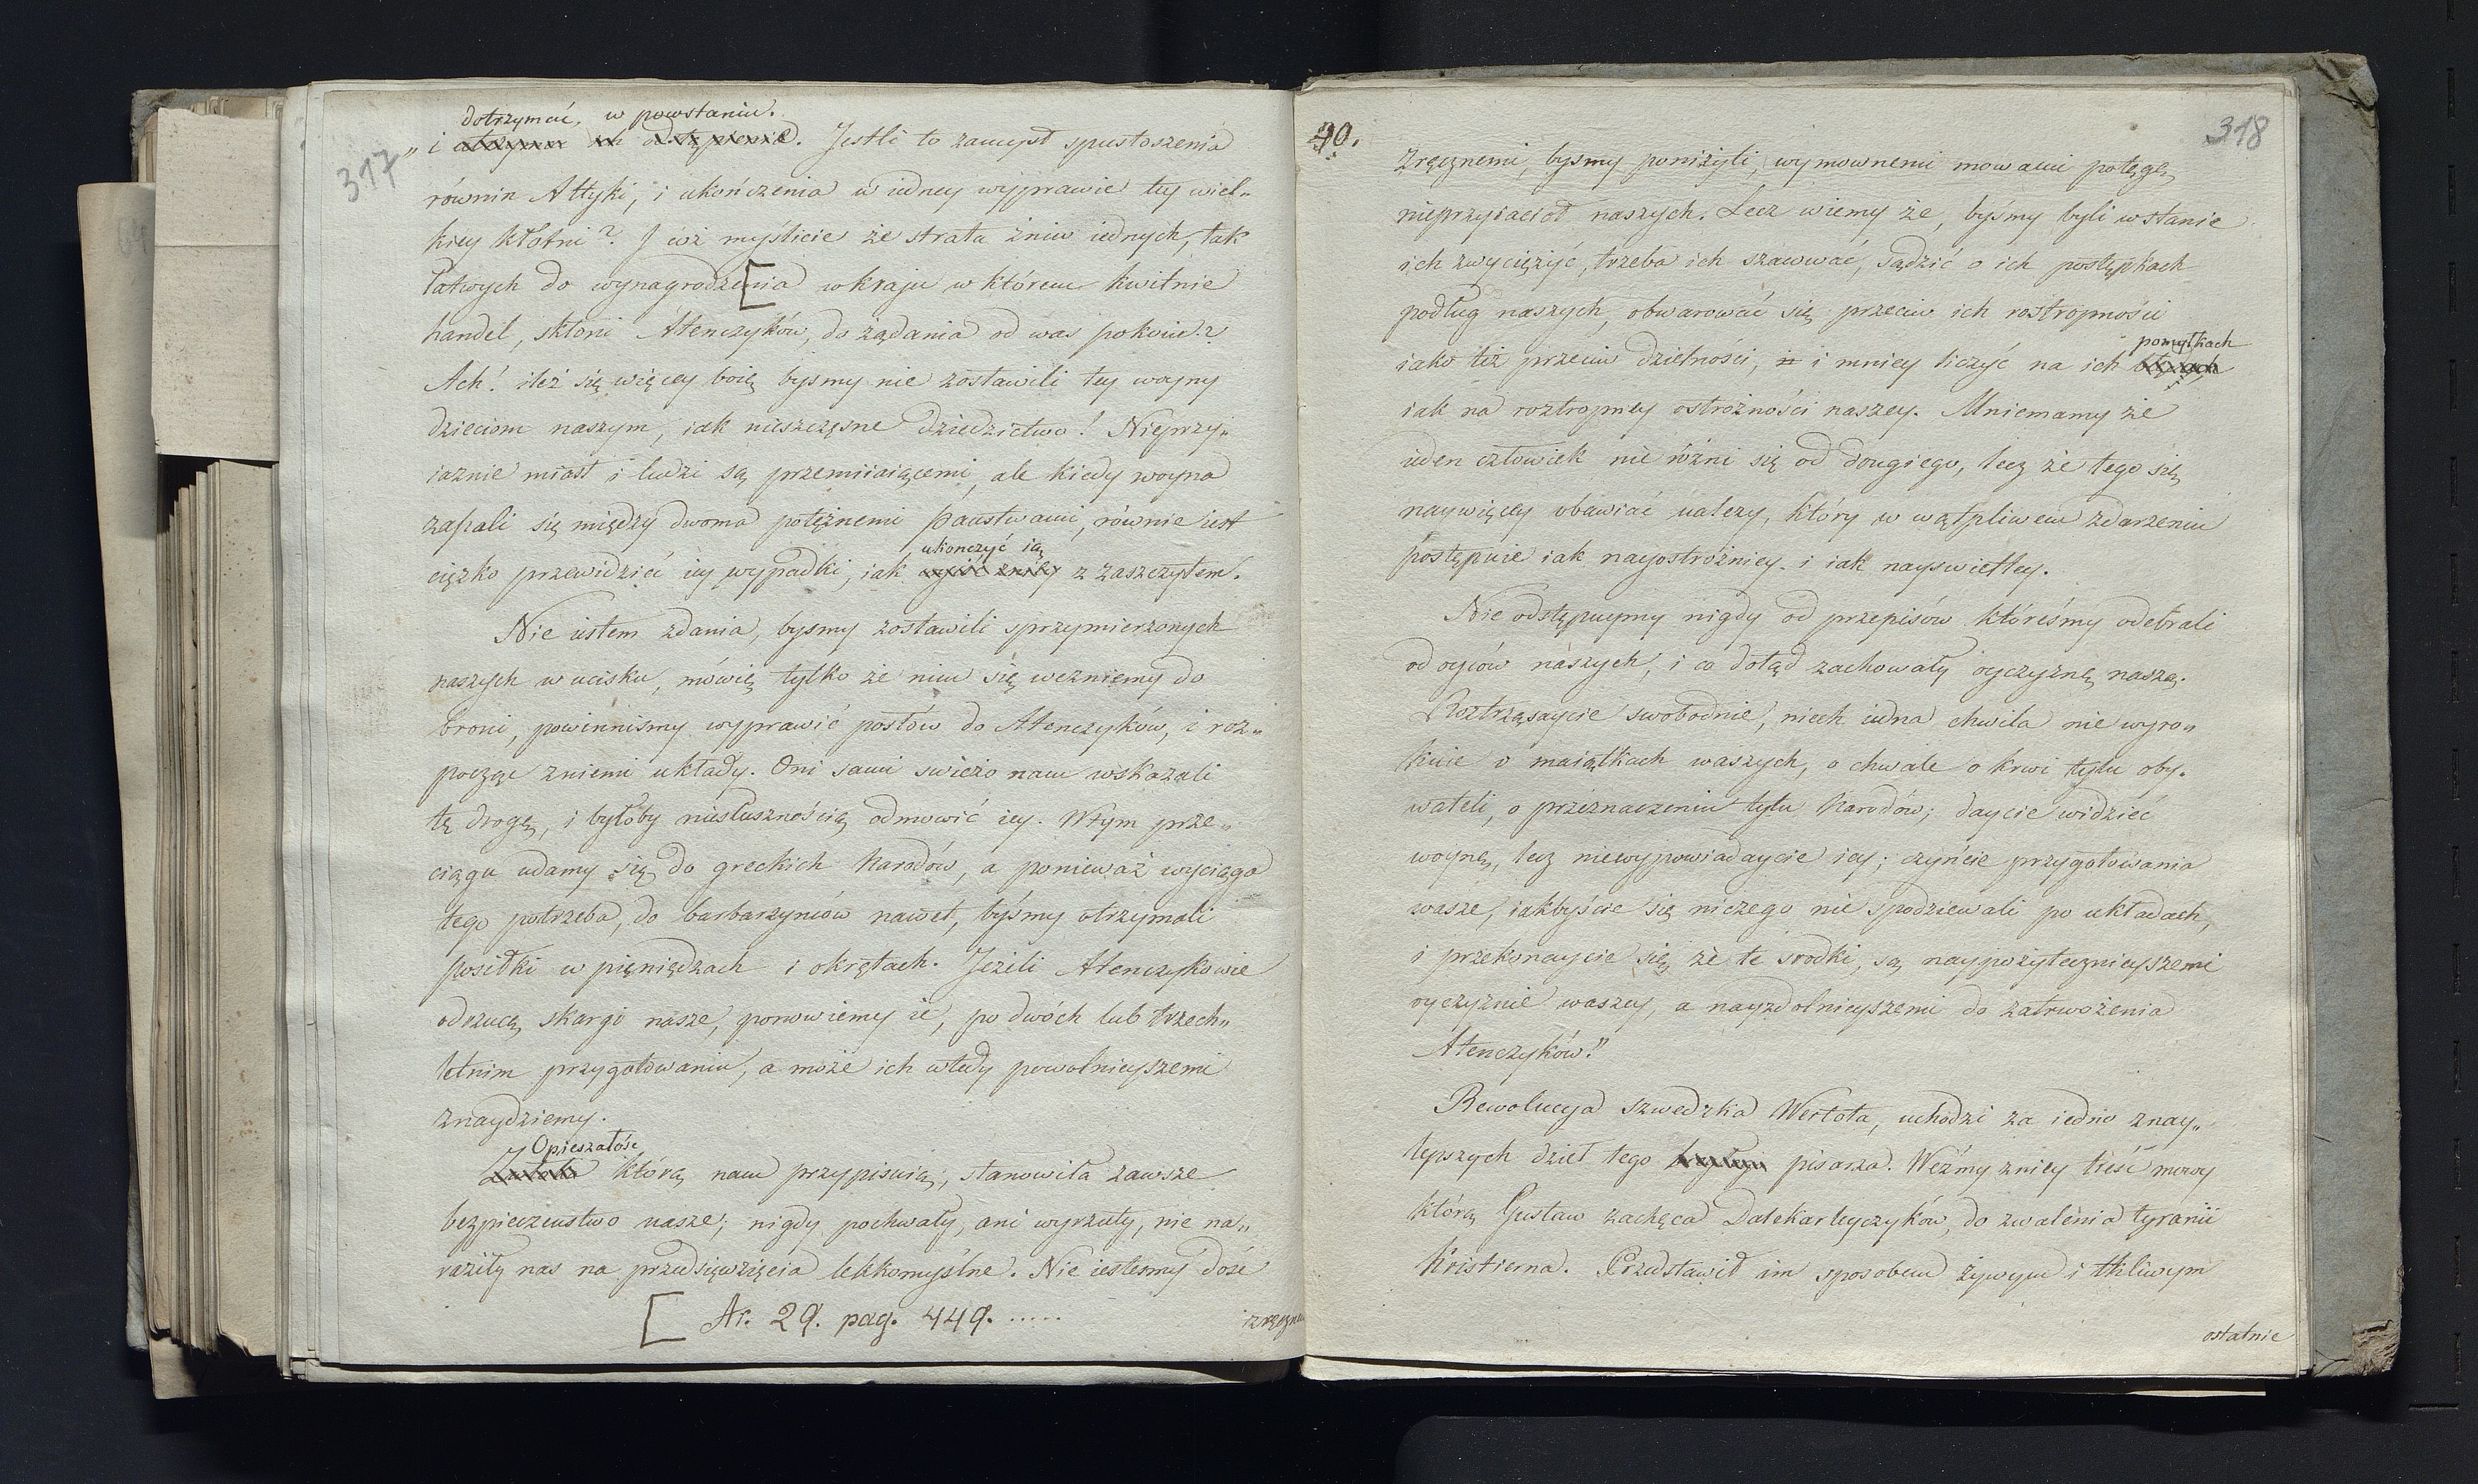 317
dotrzymać, w powstaniu.
„ i utrzymać ich odstąpienie. Jestli to zamysł spustoszenia
równin Attyki, i ukończenia w iedney wyprawie tey wiel„
kiey kłotni? I cóż myślicie że strata żniw iednych, tak
łatwych do wynagrodze[nia w kraju w którem kwitnie
handel, skłoni Atenczyków, do żądania od was pokoiu??
Ach! ileż się więcey boię bysmy nie zostawili tey woyny
dzieciom naszym, iak nieszczęsne dziedzictwo! Nieprzy„
iaznie miast i ludzi są przemiiaiącemi, ale kiedy woyna
zapali się między dwoma potężnemi państwami, równie iest
ukonczyć ią
ciężko przewidzieć iey wypadki, iak wyiść z niey z zaszczytem.
Nie iestem zdania, bysmy zostawili sprzymierzonych
naszych w ucisku, mówię tylko że nim się weźniemy do
broni, powinnismy wyprawić posłów do Atenczyków, i roz„
począć z niemi układy. Oni sami swieżo nam wskazali
tę drogę, i byłoby niesłusznością odmowić iey. W tym prze„
ciągu udamy się do greckich Narodów, a ponieważ wyciąga
tego potrzeba, do barbarzyńców nawet, byśmy otrzymali
posiłki w pięniędzach i okrętach. Jeżeli Atenczykowie
odrzucą skargi nasze, ponowiemy ie, po dwóch lub trzech„
letnim przygotowaniu, a może ich wtedy powolnieyszemi
znaydziemy.
Opieszałość
którą nam przypisuią, stanowiła zawsze
bezpieczenstwo nasze; nigdy pochwały, ani wyrzuty, nie na„
raziły nas na przedsięwzięcia lekkomyślne. Nie iestesmy dość
[ Ar. 29. pag. 449. .....
zręczne
40.
318
zręcznemi, bysmy poniżyli, wymownemi mowami potęgę
nieprzyiaciół naszych. Lecz wiemy że, byśmy byli w stanie
ich zwyciężyć, trzeba ich szanować, sądzić o ich postępkach
podług naszych, obwarować się przeciw ich rostropności
pomyłkach
iako też przeciw dzielności, n i mniey liczyć na ich błędach
iak na roztropney ostrożności naszey. Mniemamy że
ieden człowiek nie różni się od drugiego, lecz że tego się
naywięcey obawiać należy, który w wątpliwem zdarzeniu
postępuie iak nayostróżniey i iak nayswietley.
Nie odstępuymy nigdy od przepisów któreśmy odebrali
od oyców naszych, i co dotąd zachowały oyczyznę naszą.
Roztrząsaycie swobodnie, niech iedna chwila nie wyro„
kuie o maiątkach waszych, o chwale o krwi tylu oby„
wateli, o przeznaczeniu tylu Narodów; daycie widzieć
woynę, lecz niewypowiadaycie iey; czyńcie przygotowania
wasze, iakbyście się niczego nie spodziewali po układach,
i przekonaycie się że te srodki, są naypożytecznieyszemi
oyczyznie waszey, a nayzdolnieyszemi do zatrwożenia
Atenczyków."
Rewolucya szwedzka Wertota, uchodzi za iedno z nay„
lepszych dzieł tego pisarza. Weźmy z niey treść mowy
którą Gustaw zachęca Dalekarleyczyków, do zwalenia tyranii
Kristierna. Przedstawił im sposobem żywym i tkliwym
ostatnie